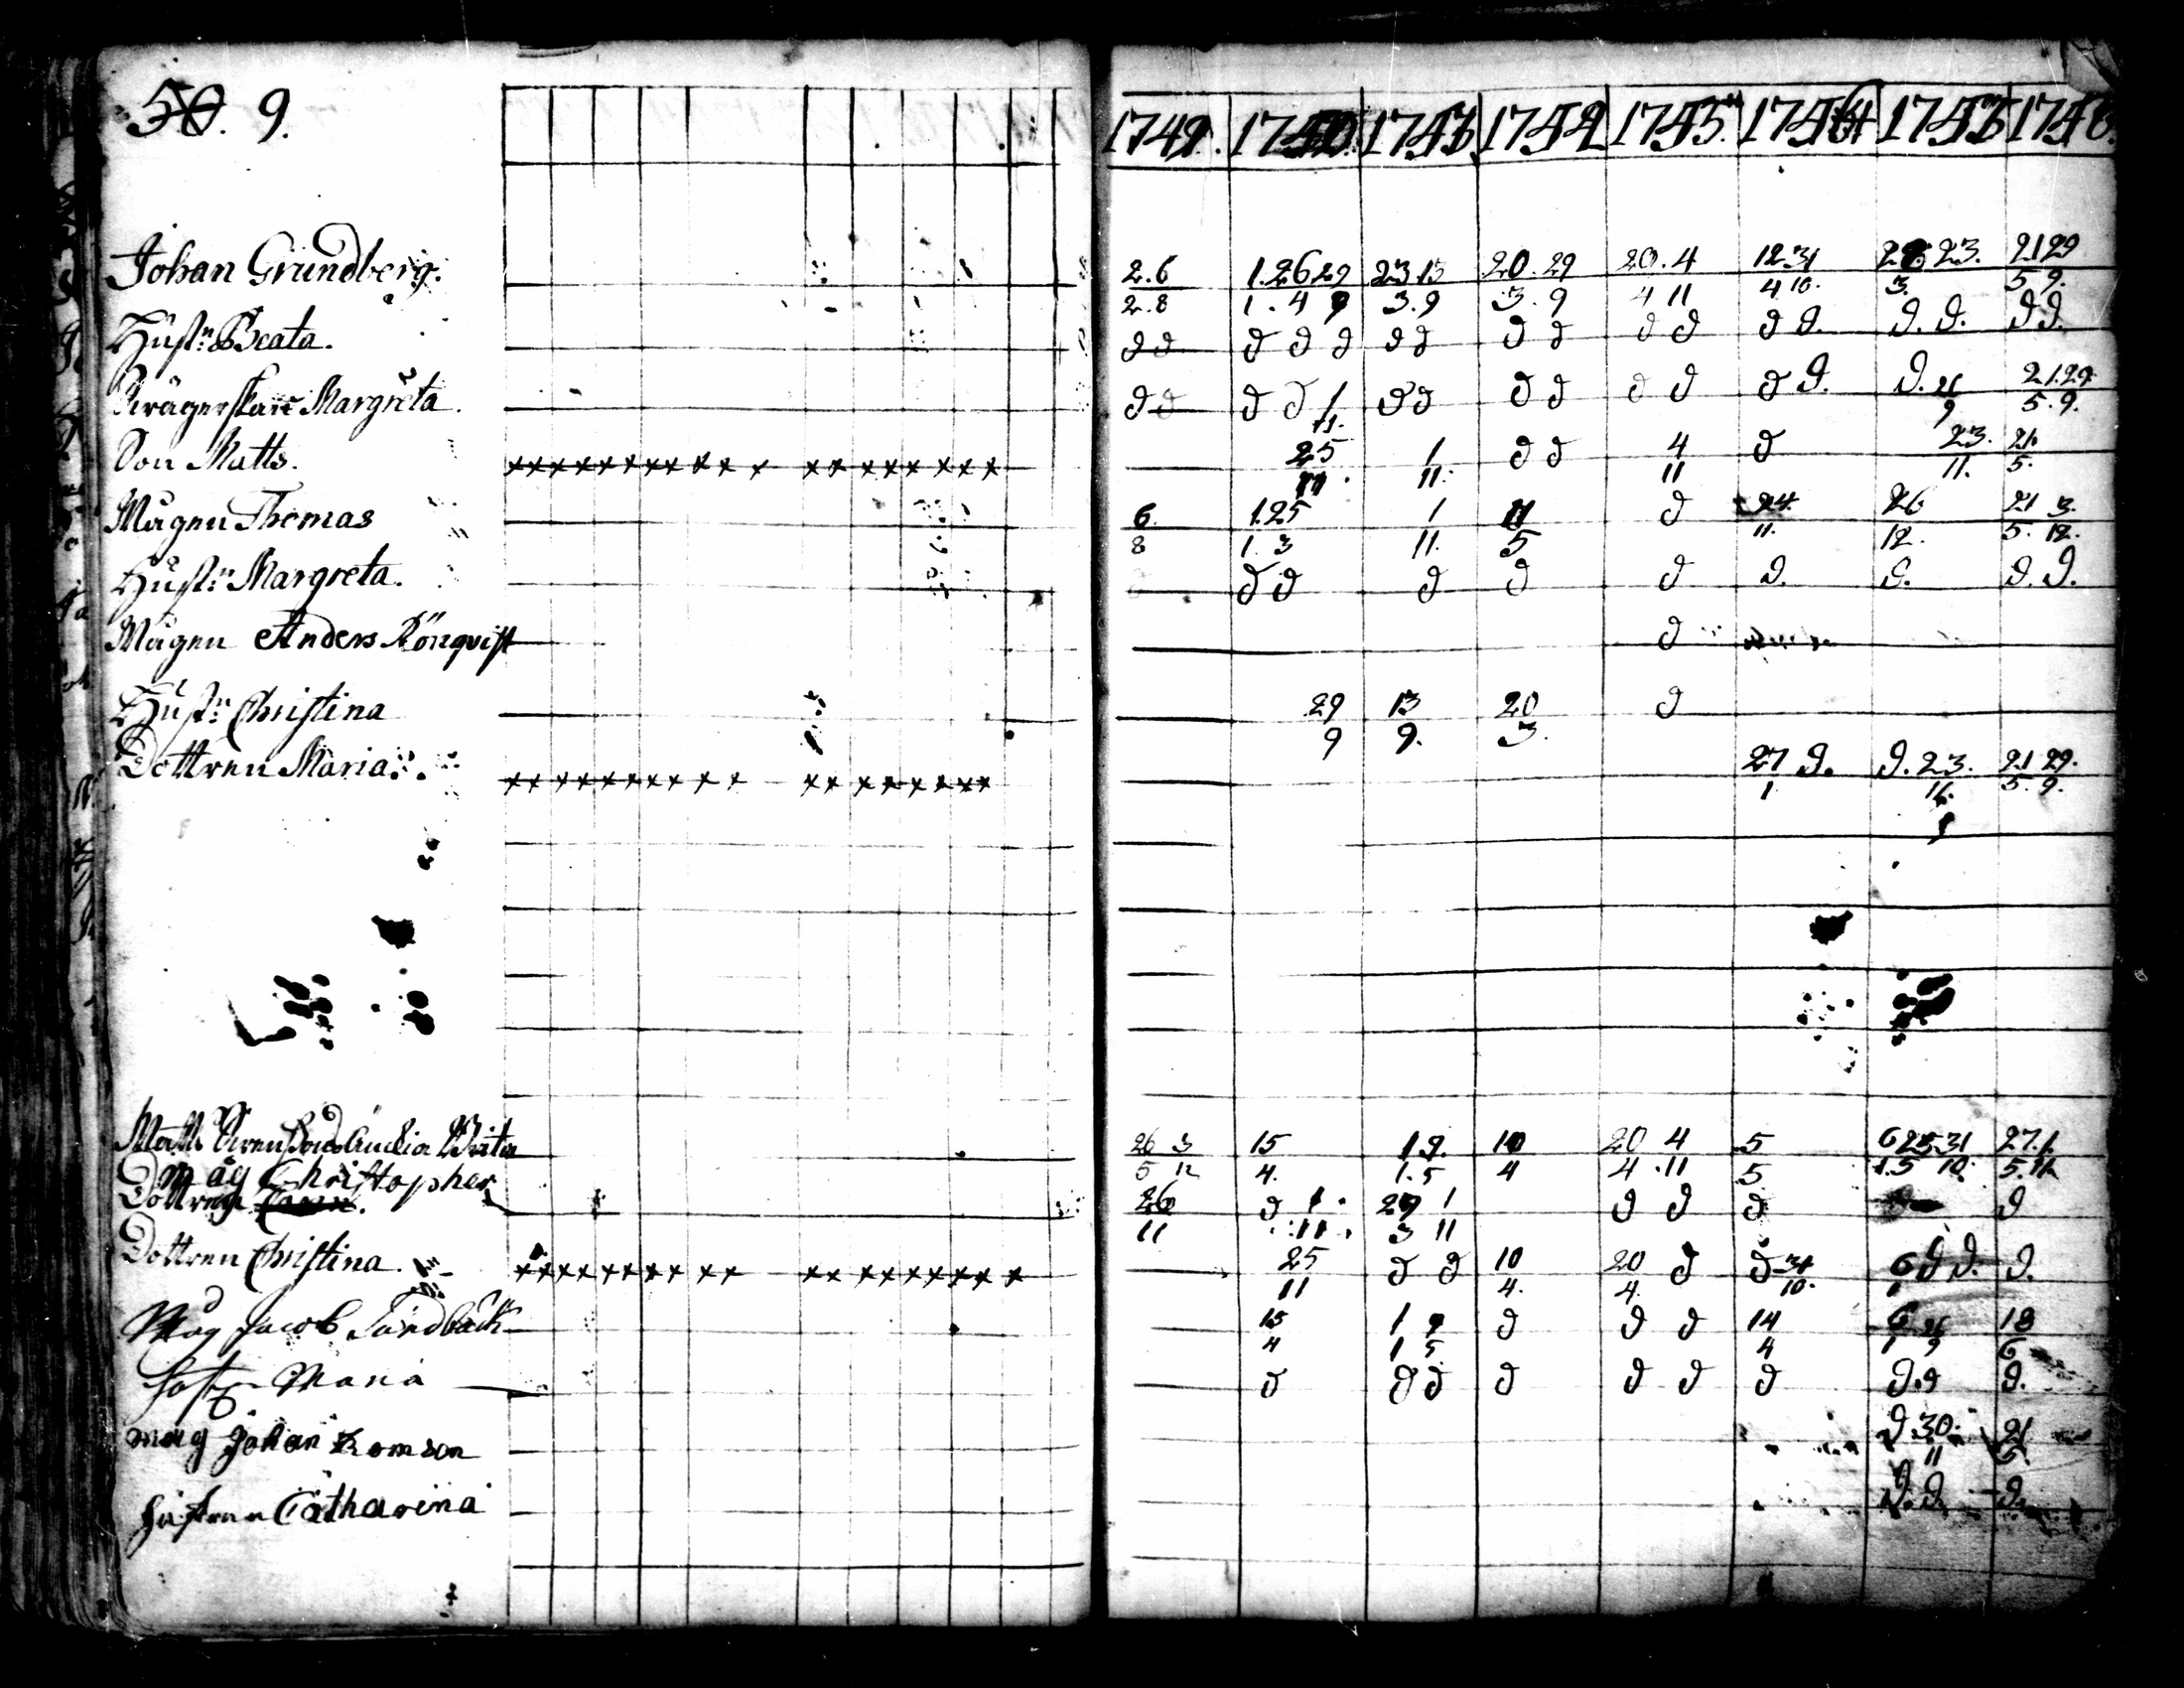 50. 9.
1749. 1750. 1753 1754 1755. 1756 1757 1758.
Johan Grundberg. 2.6 1.26 29 23 13 20.29 20.4 12 31 23. 21 29
2.8 1.4 9 3.9 3.9 4 11 4 10. 3. 5 9.
Hust:n Beata. d d d d d d d d d d d d d. d. d. d d.
Swägerskan Margreta. d d d d 1 d d d d d d d d. d. 26 21.29
11. 9 5.9.
Son Matts. ××××××××××× ×××××××× 25 1 d d 4 d 23. 21.
11. 11. 11 11. 5.
Mågen Thomas 6 1.25 1 11 d 24. 26 21 3.
8 1. 3 11. 5 11. 12. 5. 12.
Hust:n Margreta. d d d d d d. d. d. d.
Mågen Anders Rönqvist d
Hust:n Christina 29 13 20 d
9 9. 3.
Dottren Maria. ×××××××××× ×××××××× 27 d. d. 23. 21 29.
1 5. 9.
Matts Swensons Änckia Brita 26 3 15 1 9. 10 20 4 5 6 25 31 27.1.
5 12 4. 1.5 4 4.11 5 1.5 10. 5.11
Måg Christopher
Dottren 26 d 1. 29 1 d d d d
11 11. 3 11
Dottren Christina. ×××××××××× ××××××××× 25 d d 10 20 d d 31 6 d d. d.
11 4. 4. 10. 1
Måg Jacob Sandbäck 15 1 9 d d d 14 6 26 18
4 1 5 4 1 9 6
Hust Maria d d d d d d d d. d d.
måg Johan Thomson d 30. 21
11 5.
hustrun Catharina d. d. d.